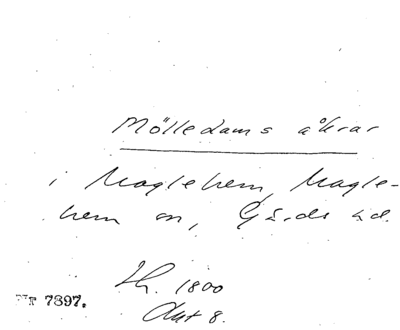 Mölledams åkrar
i Maglehem, Magle-
hem sn, Gärds hd.
1800
Akt 8.
Nr 7397.